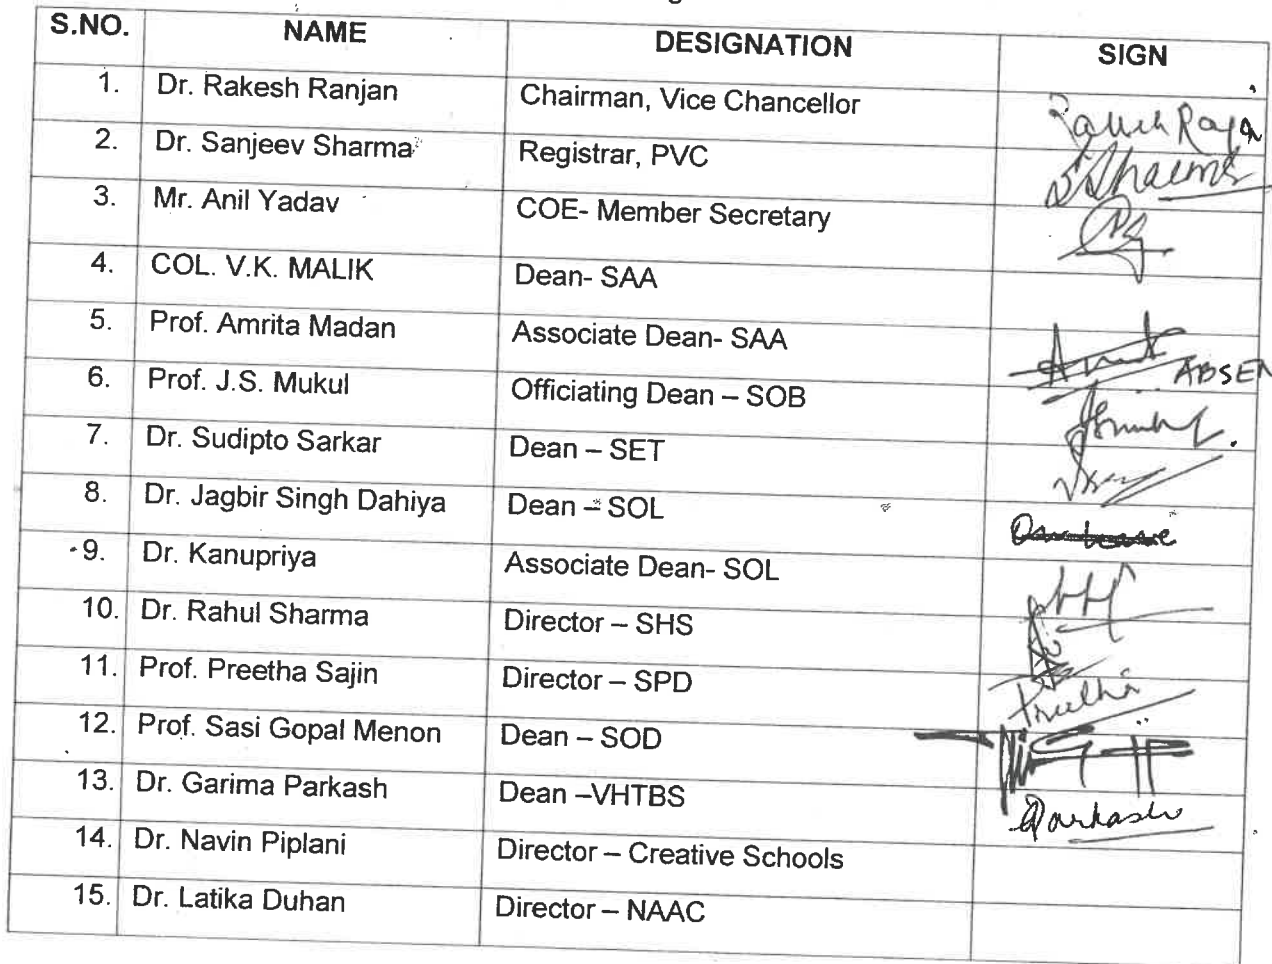 S.NO. NAME DESIGNATION SIGN
1. Dr. Rakesh Ranjan Chairman, Vice Chancellor
2. Dr. Sanjeev Sharma Registrar, PVC
3. Mr. Anil Yadav COE- Member Secretary
4. COL. V.K. MALIK Dean- SAA
5. Prof. Amrita Madan Associate Dean- SAA
6. Prof. J.S. Mukul Officiating Dean – SOB ABSEN
7. Dr. Sudipto Sarkar Dean – SET
8. Dr. Jagbir Singh Dahiya Dean – SOL
9. Dr. Kanupriya Associate Dean- SOL
10. Dr. Rahul Sharma Director – SHS
11. Prof. Preetha Sajin Director – SPD
12. Prof. Sasi Gopal Menon Dean – SOD
13. Dr. Garima Parkash Dean –VHTBS Parkash
14. Dr. Navin Piplani Director – Creative Schools
15. Dr. Latika Duhan Director – NAAC